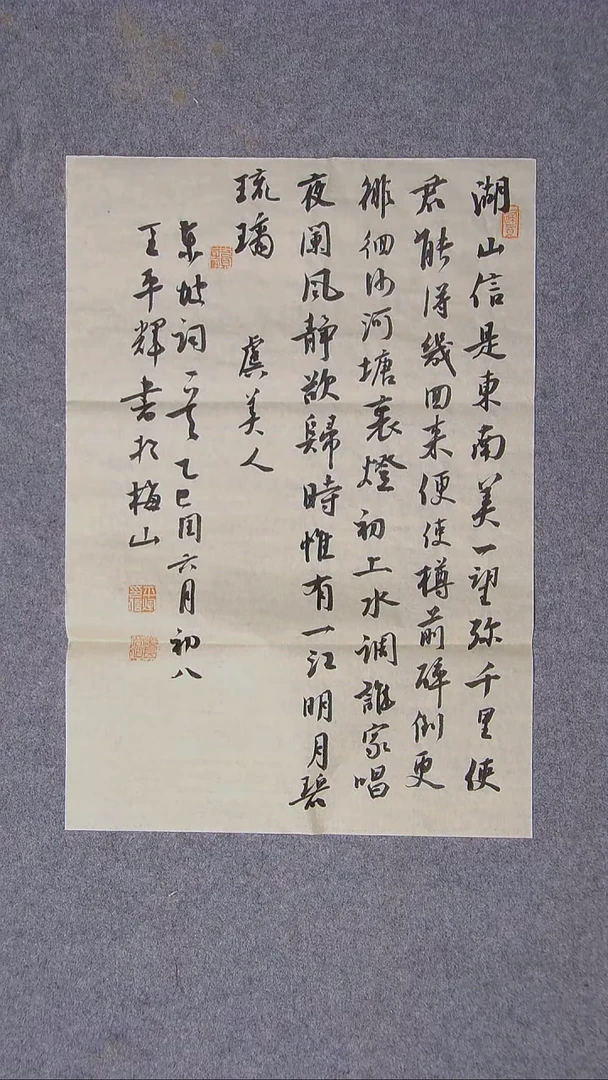 湖山信是東南美一望弥千里使
君能得幾回来便使樽前醉倒更
徘徊沙河塘裏燈初上水調誰家唱
夜闌风静欲歸時惟有一江明月碧
琉璃 虞美人
东坡词一首乙巳闰六月初八
王平輝書於梅山